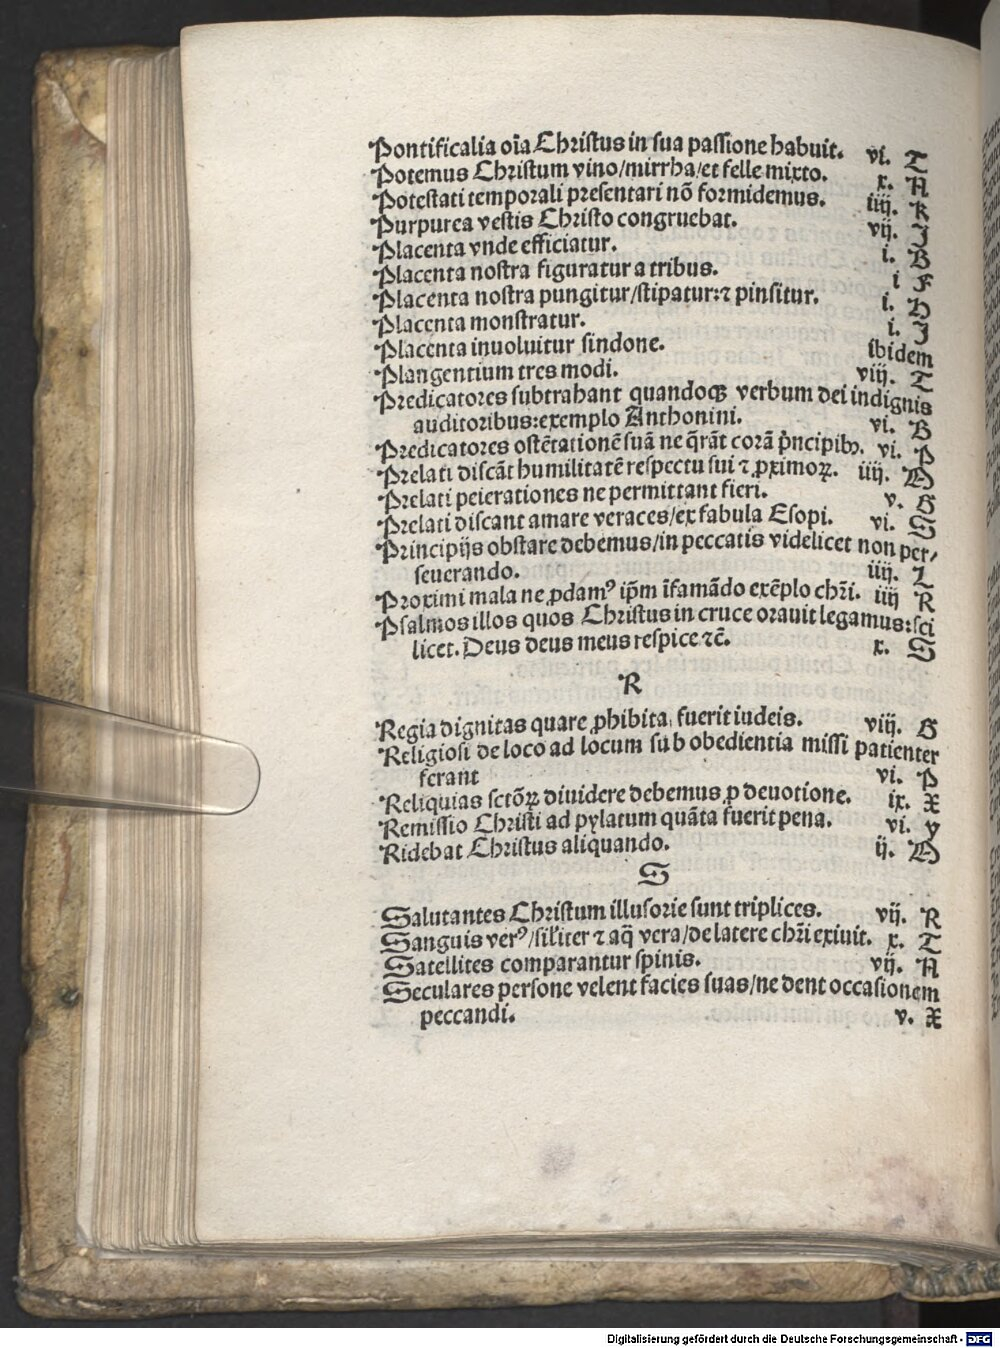 Pontificalia oīa Christus in sua passione habuit. vi. T
Potemus Christum vino/mirrha/et felle mixto. x. A
Potestati temporali presentari nō formidemus. iiij. K
Purpurea vestis Christo congruebat. vij. J
Placenta vnde efficiatur. i. B
Placenta nostra figuratur a tribus. i F
Placenta nostra pungitur/stipatur:⁊ pinsitur. i. H
Placenta monstratur. i. J
Placenta inuoluitur sindone. ibidem
Plangentium tres modi. viij. T
Predicatores subtrahant quandoqꝫ verbum dei indignis
auditoribus:exemplo Anthonini. vi. B
Predicatores ostētationē suā ne q̄rāt corā p̄ncipibꝰ. vi. P
Prelati discāt humilitatē respectu sui ⁊ ꝓximoꝝ. iiij.
Prelati peierationes ne permittant fieri. v. G
Prelati discant amare veraces/ex fabula Esopi. vi. S
Principijs obstare debemus/in peccatis videlicet non per/
seuerando. iiij. L
Proximi mala ne ꝓdamꝰ ip̄m īfamādo exēplo chr̄i. iiij R
Psalmos illos quos Christus in cruce orauit legamus:sci
licet. Deus deus meus respice ⁊c̄. x. S
R
Regia dignitas quare ꝓhibita fuerit iudeis. viij. G
Religiosi de loco ad locum sub obedientia missi patienter
ferant vi. P
Reliquias sctōꝝ diuidere debemus ꝓ deuotione. ix. X
Remissio Christi ad pylatum quāta fuerit pena. vi. V
Ridebat Christus aliquando. ij.
S
Salutantes Christum illusorie sunt triplices. vij. R
Sanguis verꝰ/silīter ⁊ aq̄ vera/de latere chr̄i exiuit. x. T
Satellites comparantur spinis. vij. A
Seculares persone velent facies suas/ne dent occasionem
peccandi. v. X
Digitalisierung gefördert durch die Deutsche Forschungsgemeinschaft - DFG